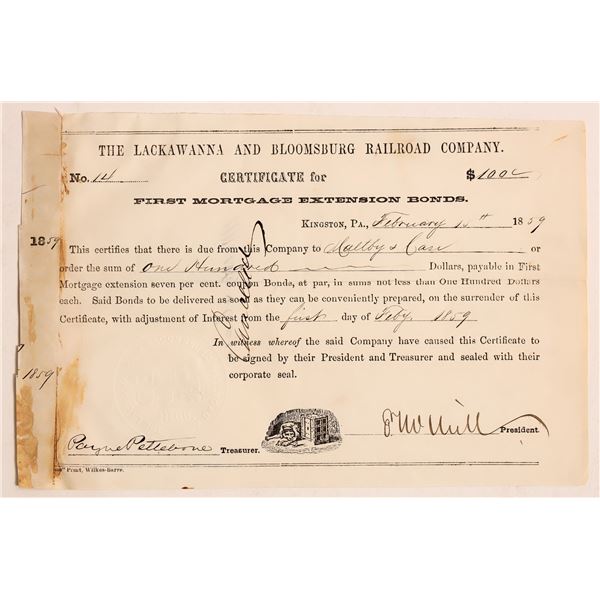 THE LACKAWANNA AND BLOOMSBURG RAILROAD COMPANY.
No. 14 CERTIFICATE for $100
FIRST MORTGAGE EXTENSION BONDS.
KINGSTON, PA., February 15th 1859
1859
This certifies that there is due from this Company to Maltby & Case or
order the sum of One Hundred Dollars, payable in First
Mortgage extension seven per cent. coupon Bonds, at par, in sums not less than One Hundred Dollars
each. Said Bonds to be delivered as soon as they can be conveniently prepared, on the surrender of this
Certificate, with adjustment of Interest from the first day of Feby. 1859
Cancelled
1859
In witness whereof the said Company have caused this Certificate to
be signed by their President and Treasurer and sealed with their
corporate seal.
President.
Payne Pettebone Treasurer.
Print, Wilkes-Barre.